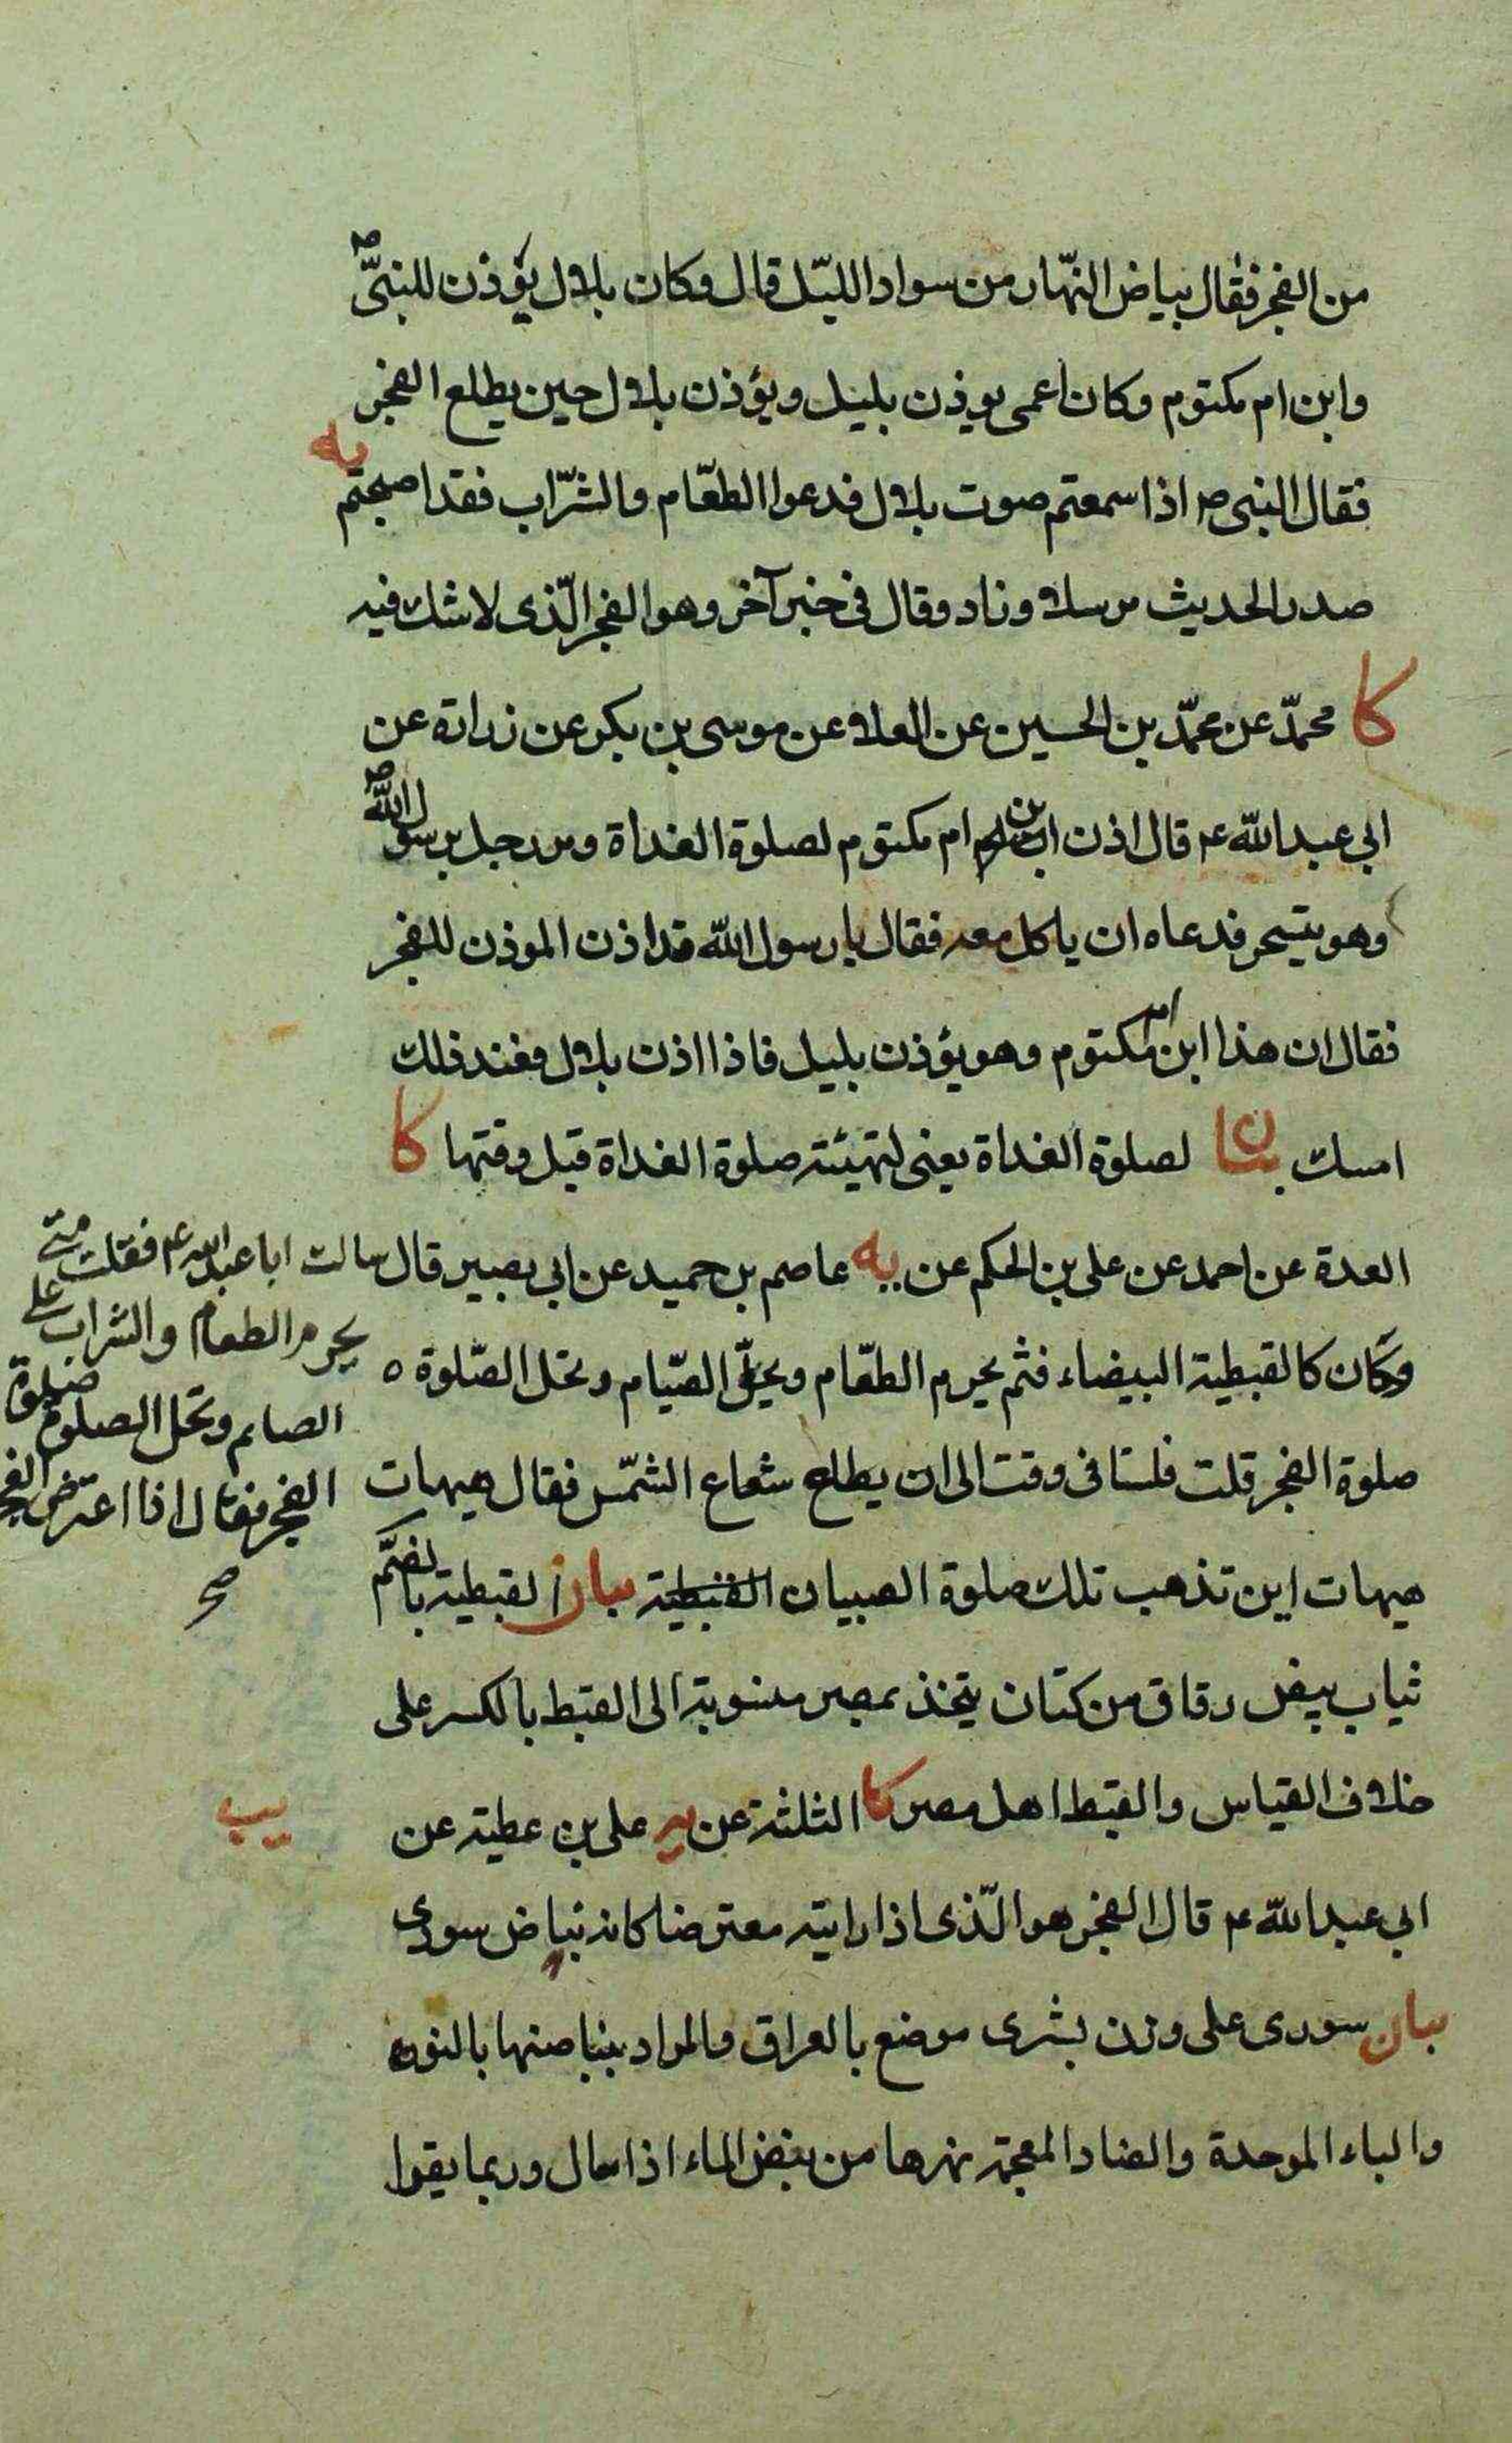 من الفجر فقال بياض النّهار من سواد الليّل قال وكان بلال يؤذن للنبيّ ص
وابن ام مكتوم وكان اعمى يوذن بليل ويؤذن بلال حين يطلع الفجر
يه
فقال النبى ص اذا سمعتم صوت بلال فدعوا الطعّام والشرّاب فقد اصبحتم
صدر الحديث مرسلا وزاد وقال فى خبر آخر وهو الفجر الّذى لا شك فيه
كا محمدّ عن محمدّ بن الحسين عن العلا عن موسى بن بكر عن زرارة عن
ابي عبد الله ع قال اذن ابن ام مكتوم لصلوة الغداة ومر رجل برسول الله ص
وهو يتسحر فدعاه ان ياكل معه فقال يا رسول الله قد اذن الموذن للفجر
فقال ان هذا ابن ام مكتوم وهو يؤذن بليل فاذا اذن بلال فعند ذلك
امسك بيان لصلوة الغداة يعنى لتهيئة صلوة الغداة قبل وقتها كا
العدة عن احمد عن على بن الحكم عن يه عاصم بن حميد عن ابى بصير قال سالت ابا عبد الله ع فقلت متى
يحرم الطعام والشراب على
الصايم وتحل الصلوة صلوة
الفجر فقال اذا اعترض الفجر
صح
وكان كالقبطية البيضاء فثم يحرم الطعّام ويحلّ الصّيام وتحل الصّلوة ه
صلوة الفجر قلت فلسنا فى وقت الى ان يطلع شعاع الشمّس فقال هيهات
هيهات اين تذهب تلك صلوة الصبيان القبطية بيان القبطية بالضمّ
ثياب بيض رقاق من كتان يتخذ بمصر منسوبة الى القبط بالكسر على
خلاف القياس والقبط اهل مصر كا الثلثة عن يه على بن عطية عن
يب
ابى عبد الله ع قال الفجر هو الّذى اذا رايته معترضا كانه نباض سورى
بيان سورى على وزن بشرى موضع بالعراق والمراد بنباضها بالنون
والباء الموحدة والضاد المعجمة نهرها من نبض الماء اذا سال وربما يقرا